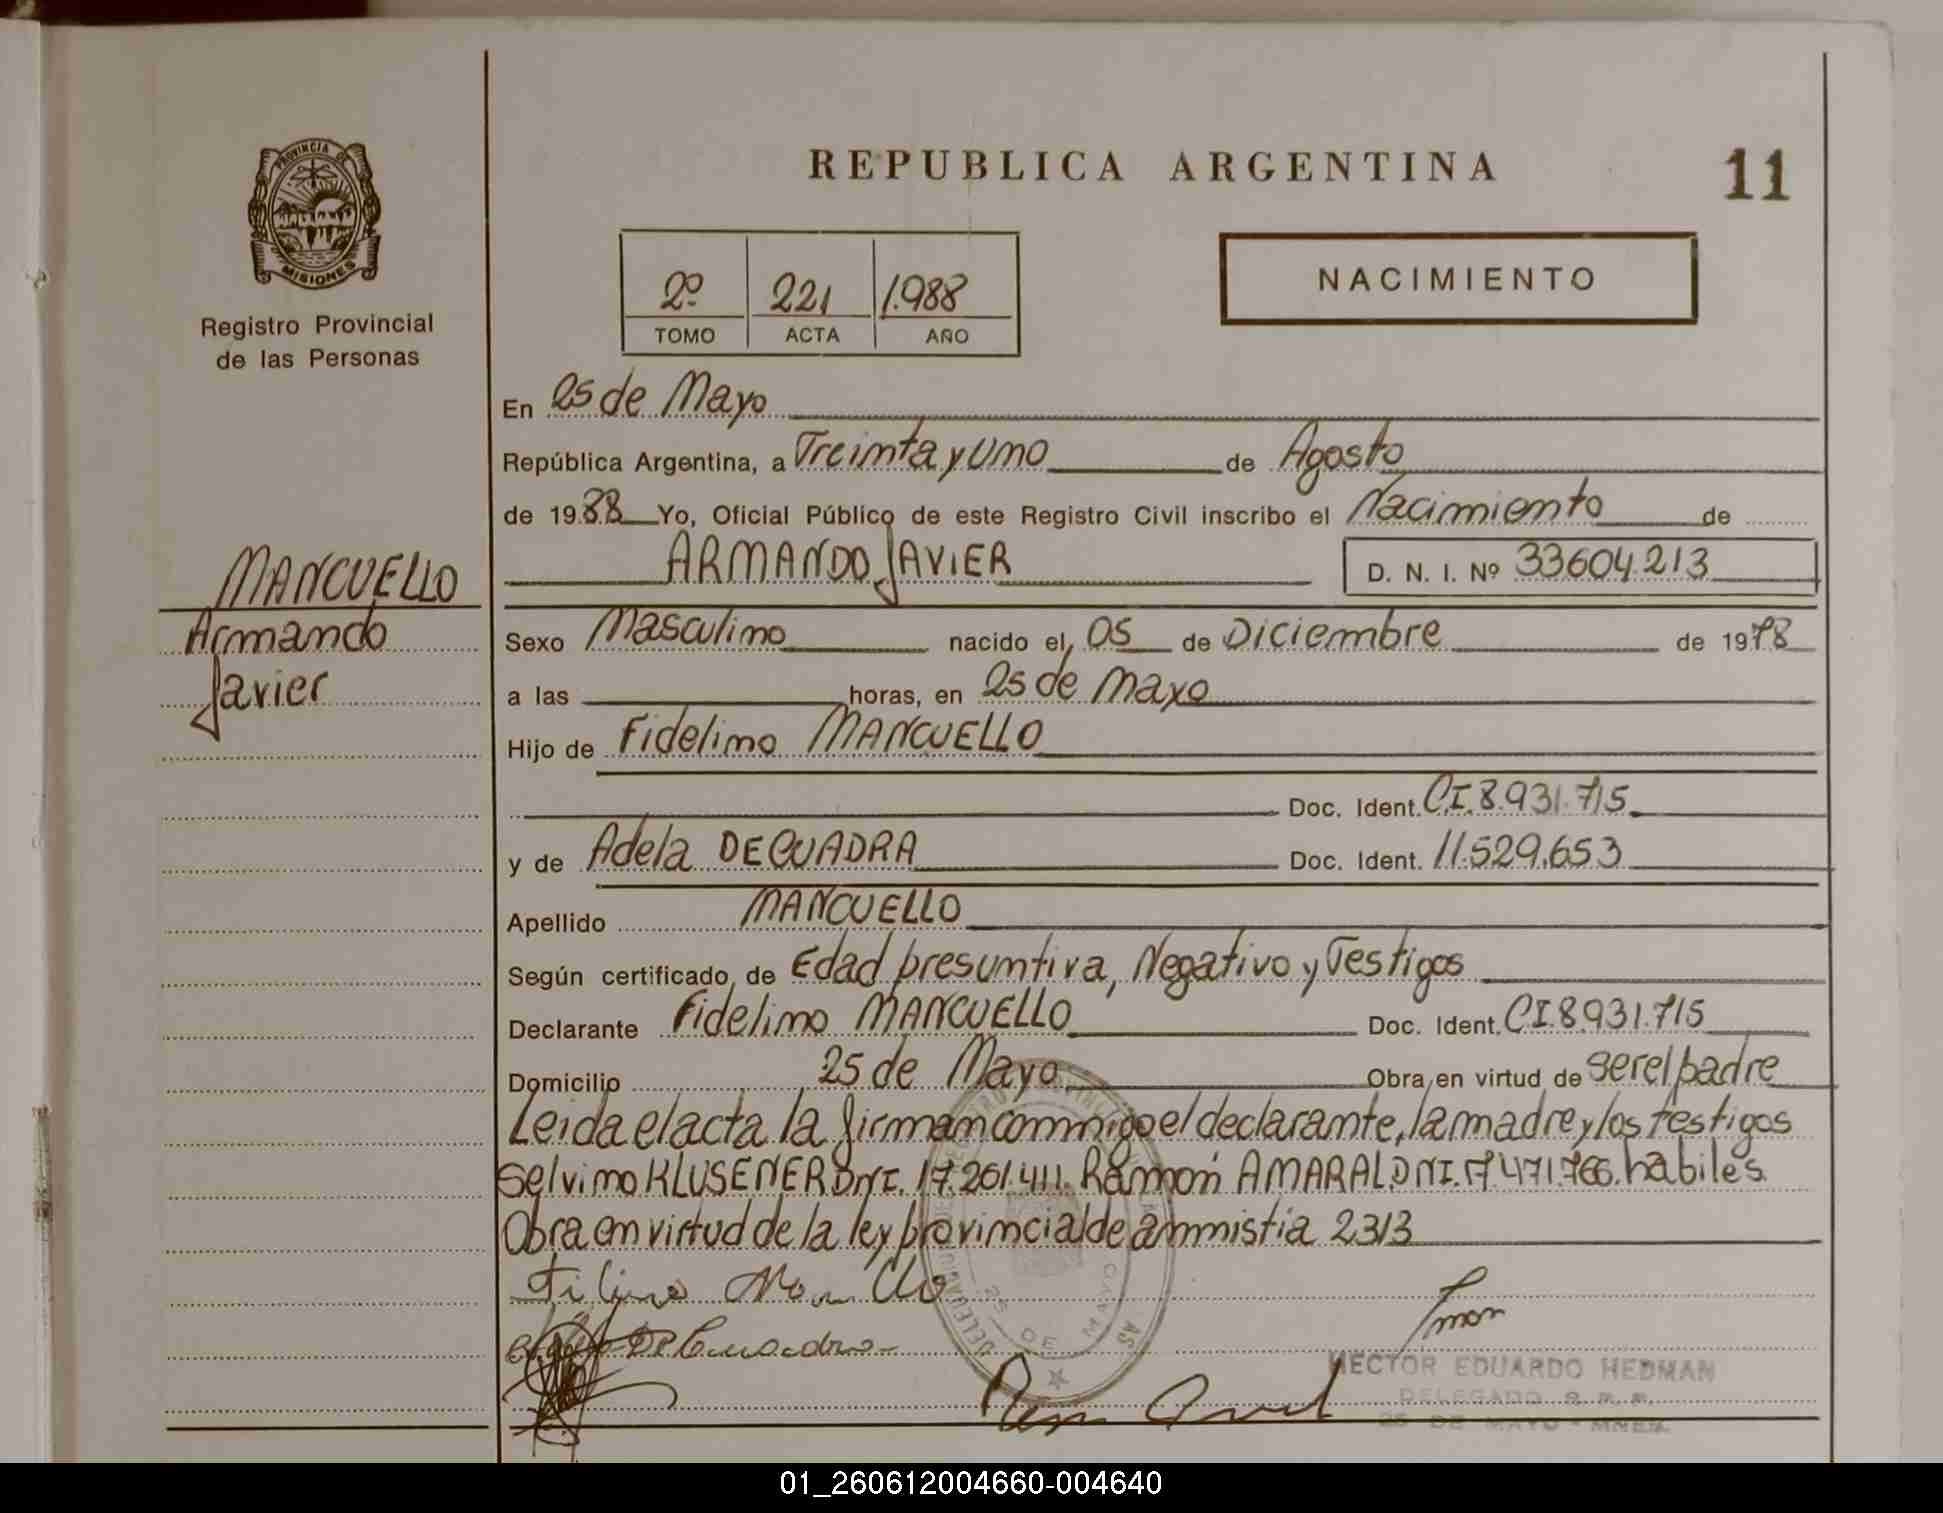 REPUBLICA ARGENTINA
11
PROVINCIA DE
MISIONES
Registro Provincial
de las Personas
2º 221 1.988
TOMO ACTA AÑO
NACIMIENTO
En 25 de Mayo
República Argentina, a Treinta y Uno de Agosto
de 1988 Yo, Oficial Público de este Registro Civil inscribo el Nacimiento de
ARMANDO JAVIER D. N. I. Nº 33604.213
MANCUELLO
Armando
Javier
Sexo Masculino nacido el, 05 de Diciembre de 1978
a las horas, en 25 de Mayo
Hijo de Fidelino MANCUELLO
Doc. Ident. C.I. 8.931.715
y de Adela DE CUADRA Doc. Ident. 11.529.653
Apellido MANCUELLO
Según certificado de Edad presuntiva, Negativo y Testigos
Declarante Fidelino MANCUELLO Doc. Ident. CI 8.931.715
Domicilio 25 de Mayo Obra en virtud de ser el padre
Leida el acta la firman conmigo el declarante, la madre y los testigos
Selvino KLUSENER DNI. 17.261.411. Ramón AMARAL DNI. 17.471.766. habiles.
Obra en virtud de la ley provincial de amnistia 2313
De Cuadra
25 DE MAYO
HECTOR EDUARDO HEDMAN
DELEGADO R. P. P.
25 DE MAYO - MNES.
01_260612004660-004640